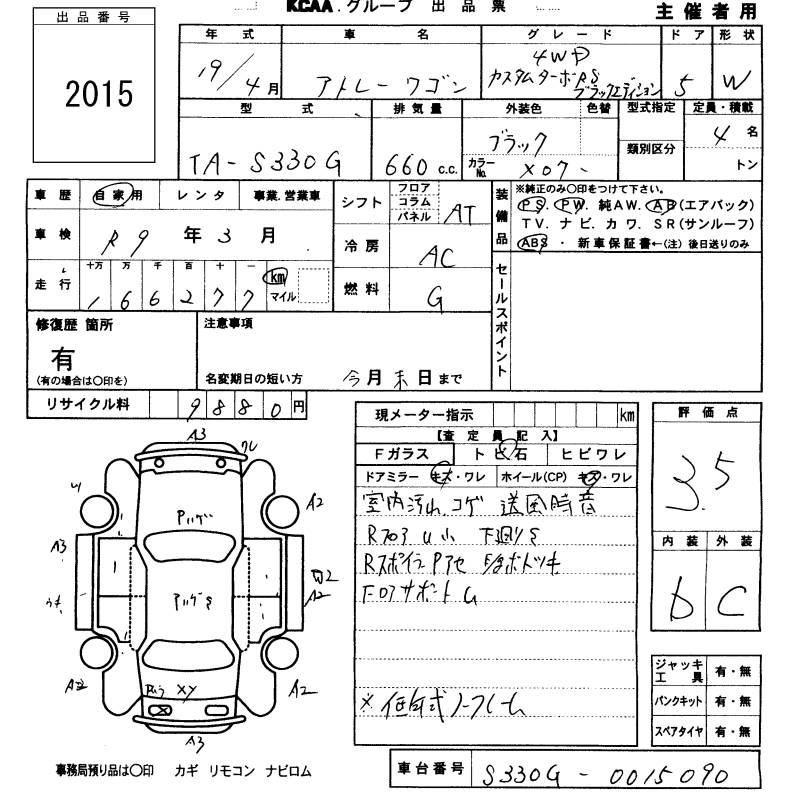 KCAA.グループ 出品票
主催者用
出品番号
2015
年式 車名 グレード ドア 形状
19/4月 アトレーワゴン 4WD カスタムターボRS ブラックエディション 5 W
型式 排気量 外装色 色替 型式指定 定員・積載
類別区分
TA-S330G 660c.c. ブラック カラーNo. X07 4名
トン
車歴 自家用 レンタ 事業.営業車
車検 R9年3月
走行 十万 万 千 百 十 一 km マイル
166277
シフト フロア コラム パネル AT
冷房 AC
燃料 G
装備品
※純正のみ○印をつけて下さい。
PS. PW. 純AW. AB(エアバック)
TV. ナビ. カワ. SR(サンルーフ)
ABS・新車保証書←(注)後日送りのみ
セールスポイント
修復歴 箇所
有
(有の場合は○印を)
注意事項
名変期日の短い方 今月末日まで
リサイクル料 9880円
現メーター指示 km
【査定員記入】
Fガラス ト ビ 石 ヒビワレ
ドアミラー キズ・ワレ ホイール(CP) キズ・ワレ
室内汚れ コゲ 送風時音
RフロアU小 下廻りS
RスポイラーPアセ
FロアサポートU
評価点
3.5
内装 外装
D C
A3
ワレ
A2
A3
A2
A2
A2
XY
A3
ジャッキ工具 有・無
パンクキット 有・無
スペアタイヤ 有・無
事務局預り品は○印 カギ リモコン ナビロム
車台番号 S330G-0015090